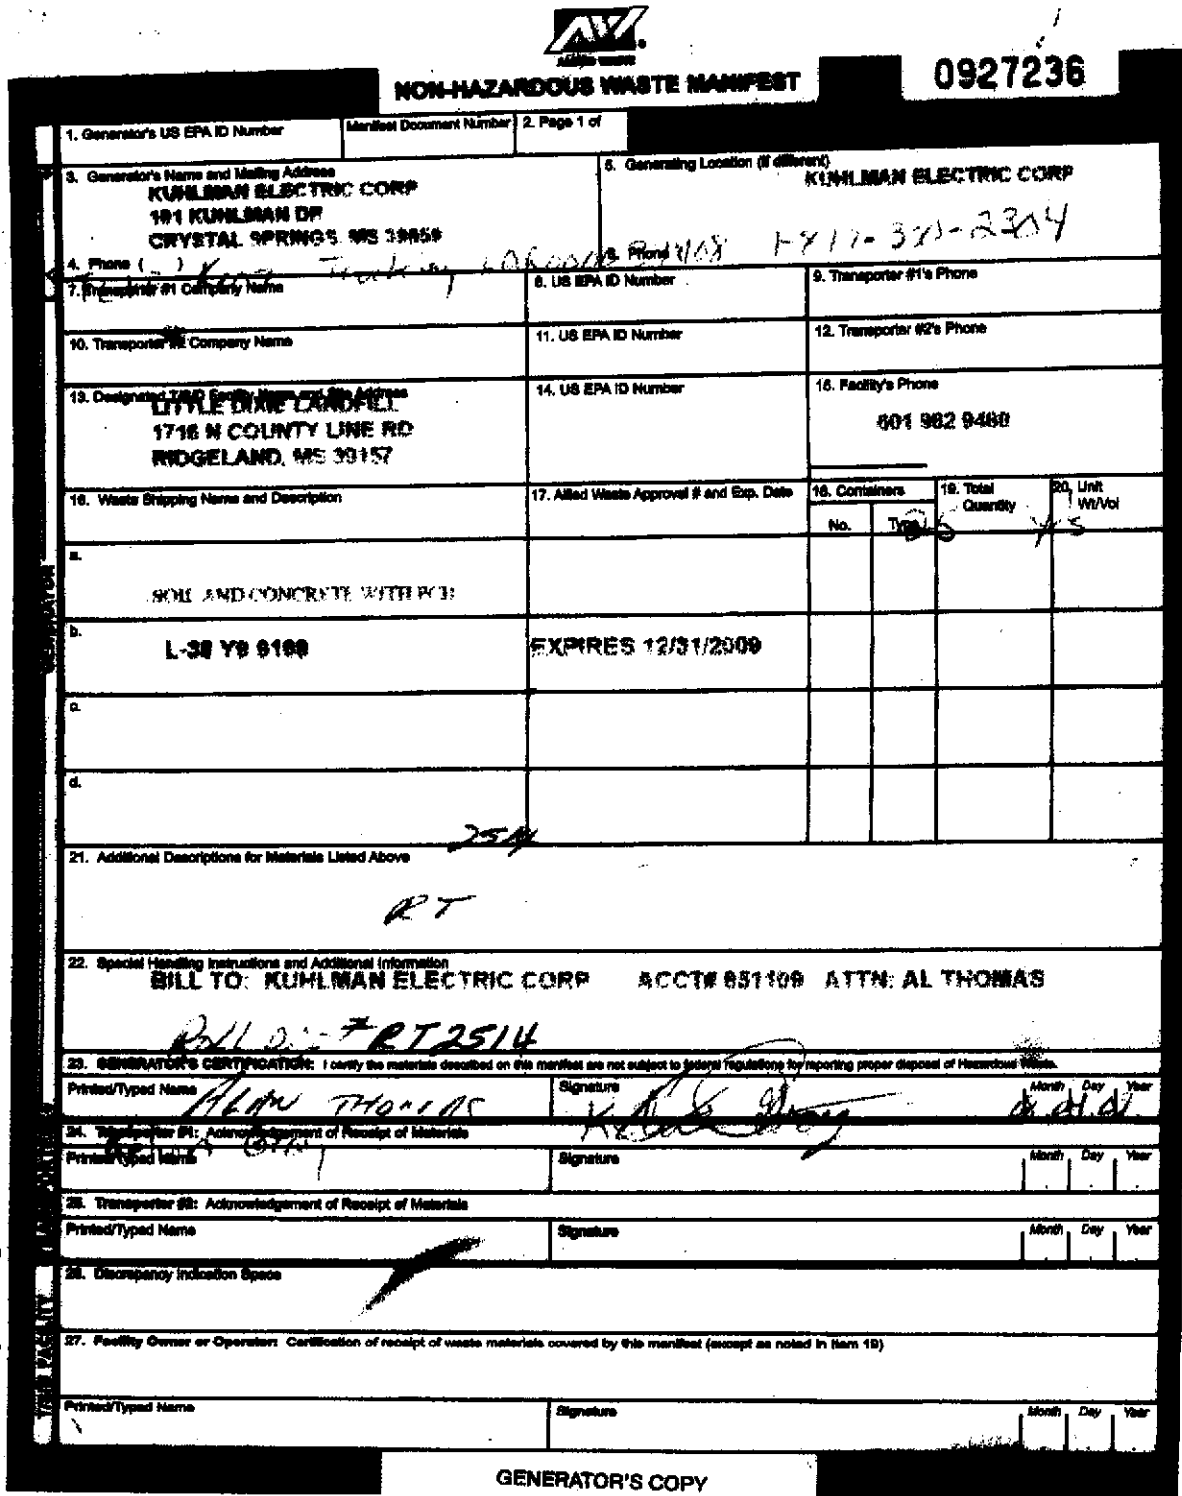 AW
ALLIED WASTE
NON-HAZARDOUS WASTE MANIFEST
0927236
1. Generator's US EPA ID Number
Manifest Document Number
2. Page 1 of
3. Generator's Name and Mailing Address
KUHLMAN ELECTRIC CORP
101 KUHLMAN DR
CRYSTAL SPRINGS MS 39059
4. Phone ( )
5. Generating Location (if different)
KUHLMAN ELECTRIC CORP
6. Phone
Trucking
7. Transporter #1 Company Name
8. US EPA ID Number
9. Transporter #1's Phone
10. Transporter #2 Company Name
11. US EPA ID Number
12. Transporter #2's Phone
13. Designated T/S/D Facility Name and Site Address
LITTLE DIXIE LANDFILL
1716 N COUNTY LINE RD
RIDGELAND, MS 39157
14. US EPA ID Number
15. Facility's Phone
601 982 9488
16. Waste Shipping Name and Description
17. Allied Waste Approval # and Exp. Date
18. Containers
No.
Type
19. Total Quantity
20. Unit Wt/Vol
a.
SOIL AND CONCRETE WITH PCB
b.
EXPIRES 12/31/2009
c.
d.
21. Additional Descriptions for Materials Listed Above
RT
22. Special Handling Instructions and Additional Information
BILL TO: KUHLMAN ELECTRIC CORP ACCT# 851109 ATTN: AL THOMAS
# RT2514
23. GENERATOR'S CERTIFICATION: I certify the materials described on this manifest are not subject to federal regulations for reporting proper disposal of Hazardous Waste.
Printed/Typed Name
ALAN THOMAS
Signature
Month Day Year
24. Transporter #1: Acknowledgement of Receipt of Materials
Printed/Typed Name
Signature
Month Day Year
25. Transporter #2: Acknowledgement of Receipt of Materials
Printed/Typed Name
Signature
Month Day Year
26. Discrepancy Indication Space
27. Facility Owner or Operator: Certification of receipt of waste materials covered by this manifest (except as noted in Item 19)
Printed/Typed Name
Signature
Month Day Year
GENERATOR
TRANSPORTER
T/S/D FACILITY
GENERATOR'S COPY